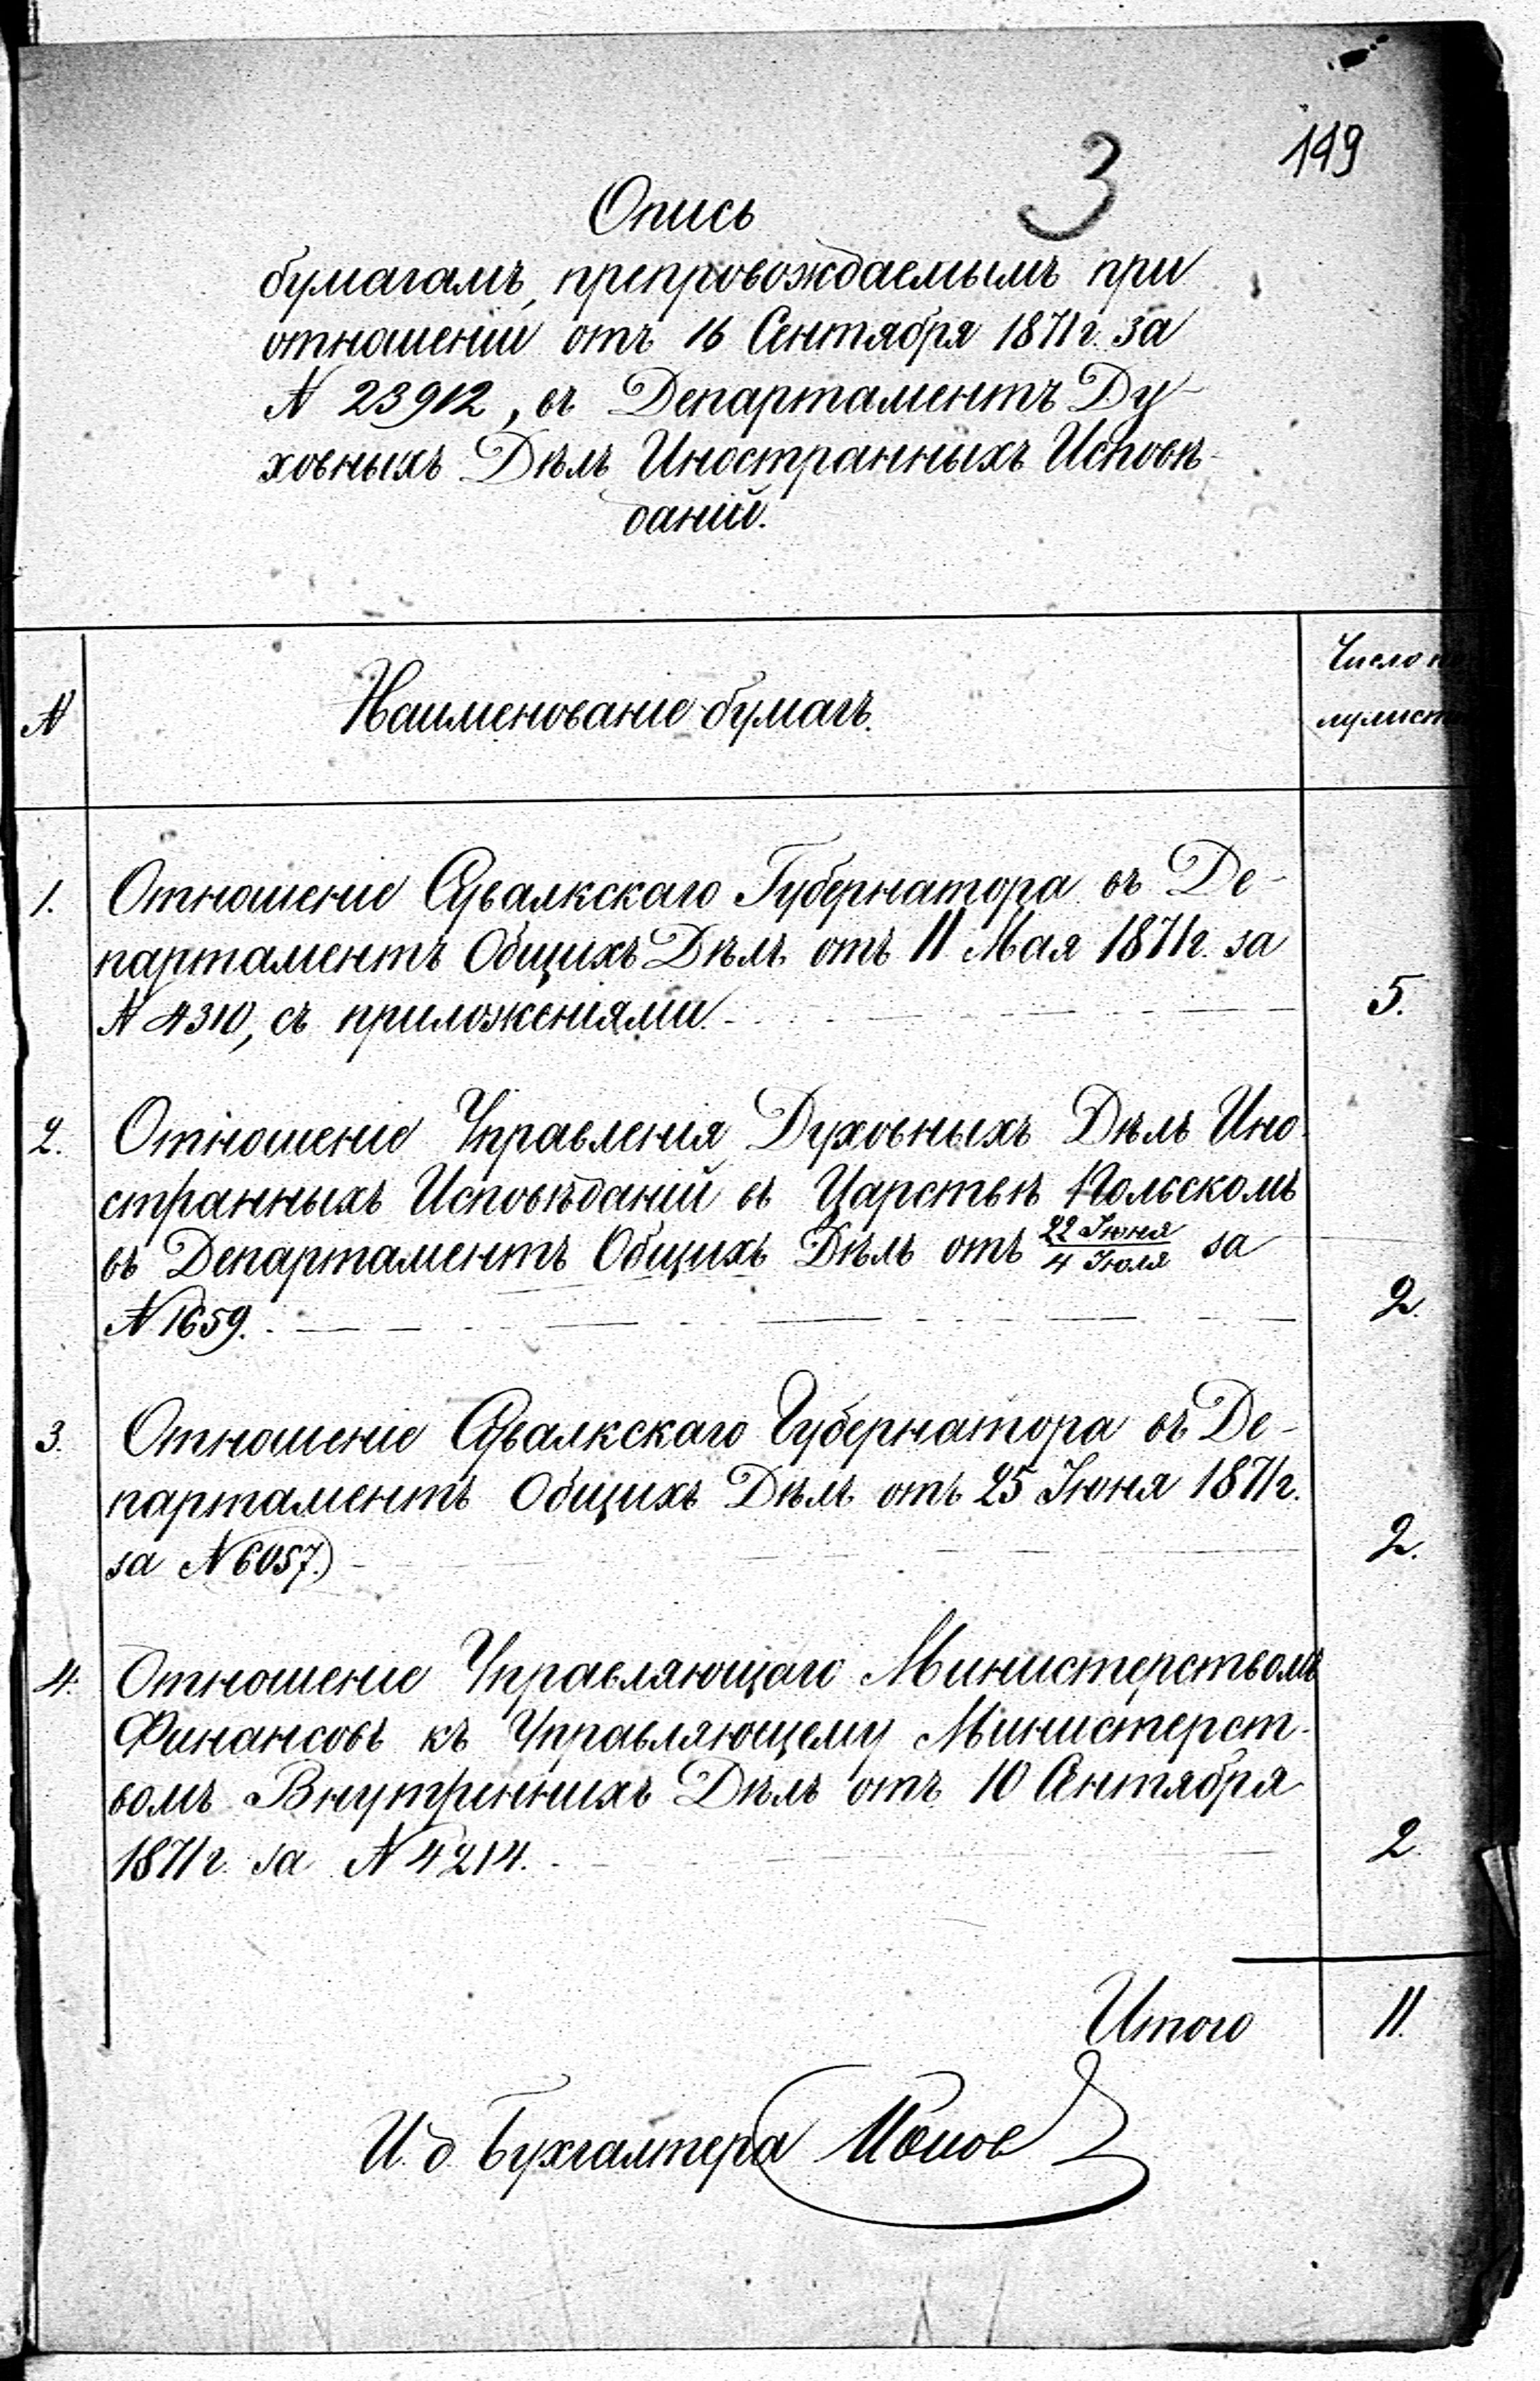 149
3
Опись
бумагамъ, препровождаемымъ при
отношеніи отъ 16 Сентября 1871 г. за
N 23912, въ Департаментъ Ду-
ховныхъ Дѣлъ Иностранныхъ Исповѣ-
даній.
N
Наименованіе бумагъ.
Число
лулист
1. Отношеніе Сувалкскаго Губернатора въ Де-
партаментъ Общихъ Дѣлъ отъ 11 Мая 1871 г. за
N 4310, съ приложеніями. 5.
2. Отношеніе Управленія Духовныхъ Дѣлъ Ино-
странныхъ Исповѣданій въ Царствѣ Польскомъ
въ Департаментъ Общихъ Дѣлъ отъ 22 Іюня/4 Іюля за
N 1659. 2.
3. Отношеніе Сувалкскаго Губернатора въ Де-
партаментъ Общихъ Дѣлъ отъ 25 Іюня 1871 г.
за N 6057.) 2.
4. Отношеніе Управляющаго Министерствомъ
Финансовъ къ Управляющему Министерст-
вомъ Внутреннихъ Дѣлъ отъ 10 Сентября
1871 г. за N 4214. 2.
Итого 11.
И. д. Бухгалтера